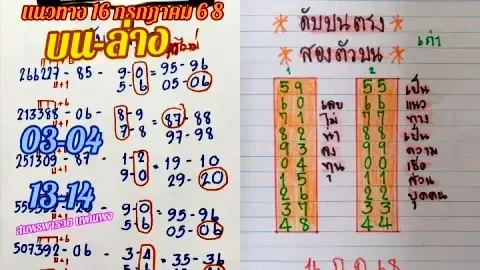 แนวทาง 16 กรกฎาคม 68
บน-ล่าง
266227 - 85 - 9-0 = 95-96
5-6 05-06
213388 - 06 - 8-9 = 87-88
7-8 97-98
03-04
251309 - 87 - 1-2 = 19-10
9-0 29-20
13-14
9-0 = 95-96
5-6 05-06
สมพรพารวย แฟนเพจ
507392 - 06 - 3-4 = 35-36
ดับบนตรง
สองตัวบน
เก่า
1 2
59 55 เป็น
60 เลข 66 แนว
71 ไม่ 77 ทาง
82 น่า 88 เป็น
93 ลง 99 ความ
04 ทุน 00 เชื่อ
15 11 ส่วน
26 22 บุคคน
37 33
48 44
16 ก ค 68